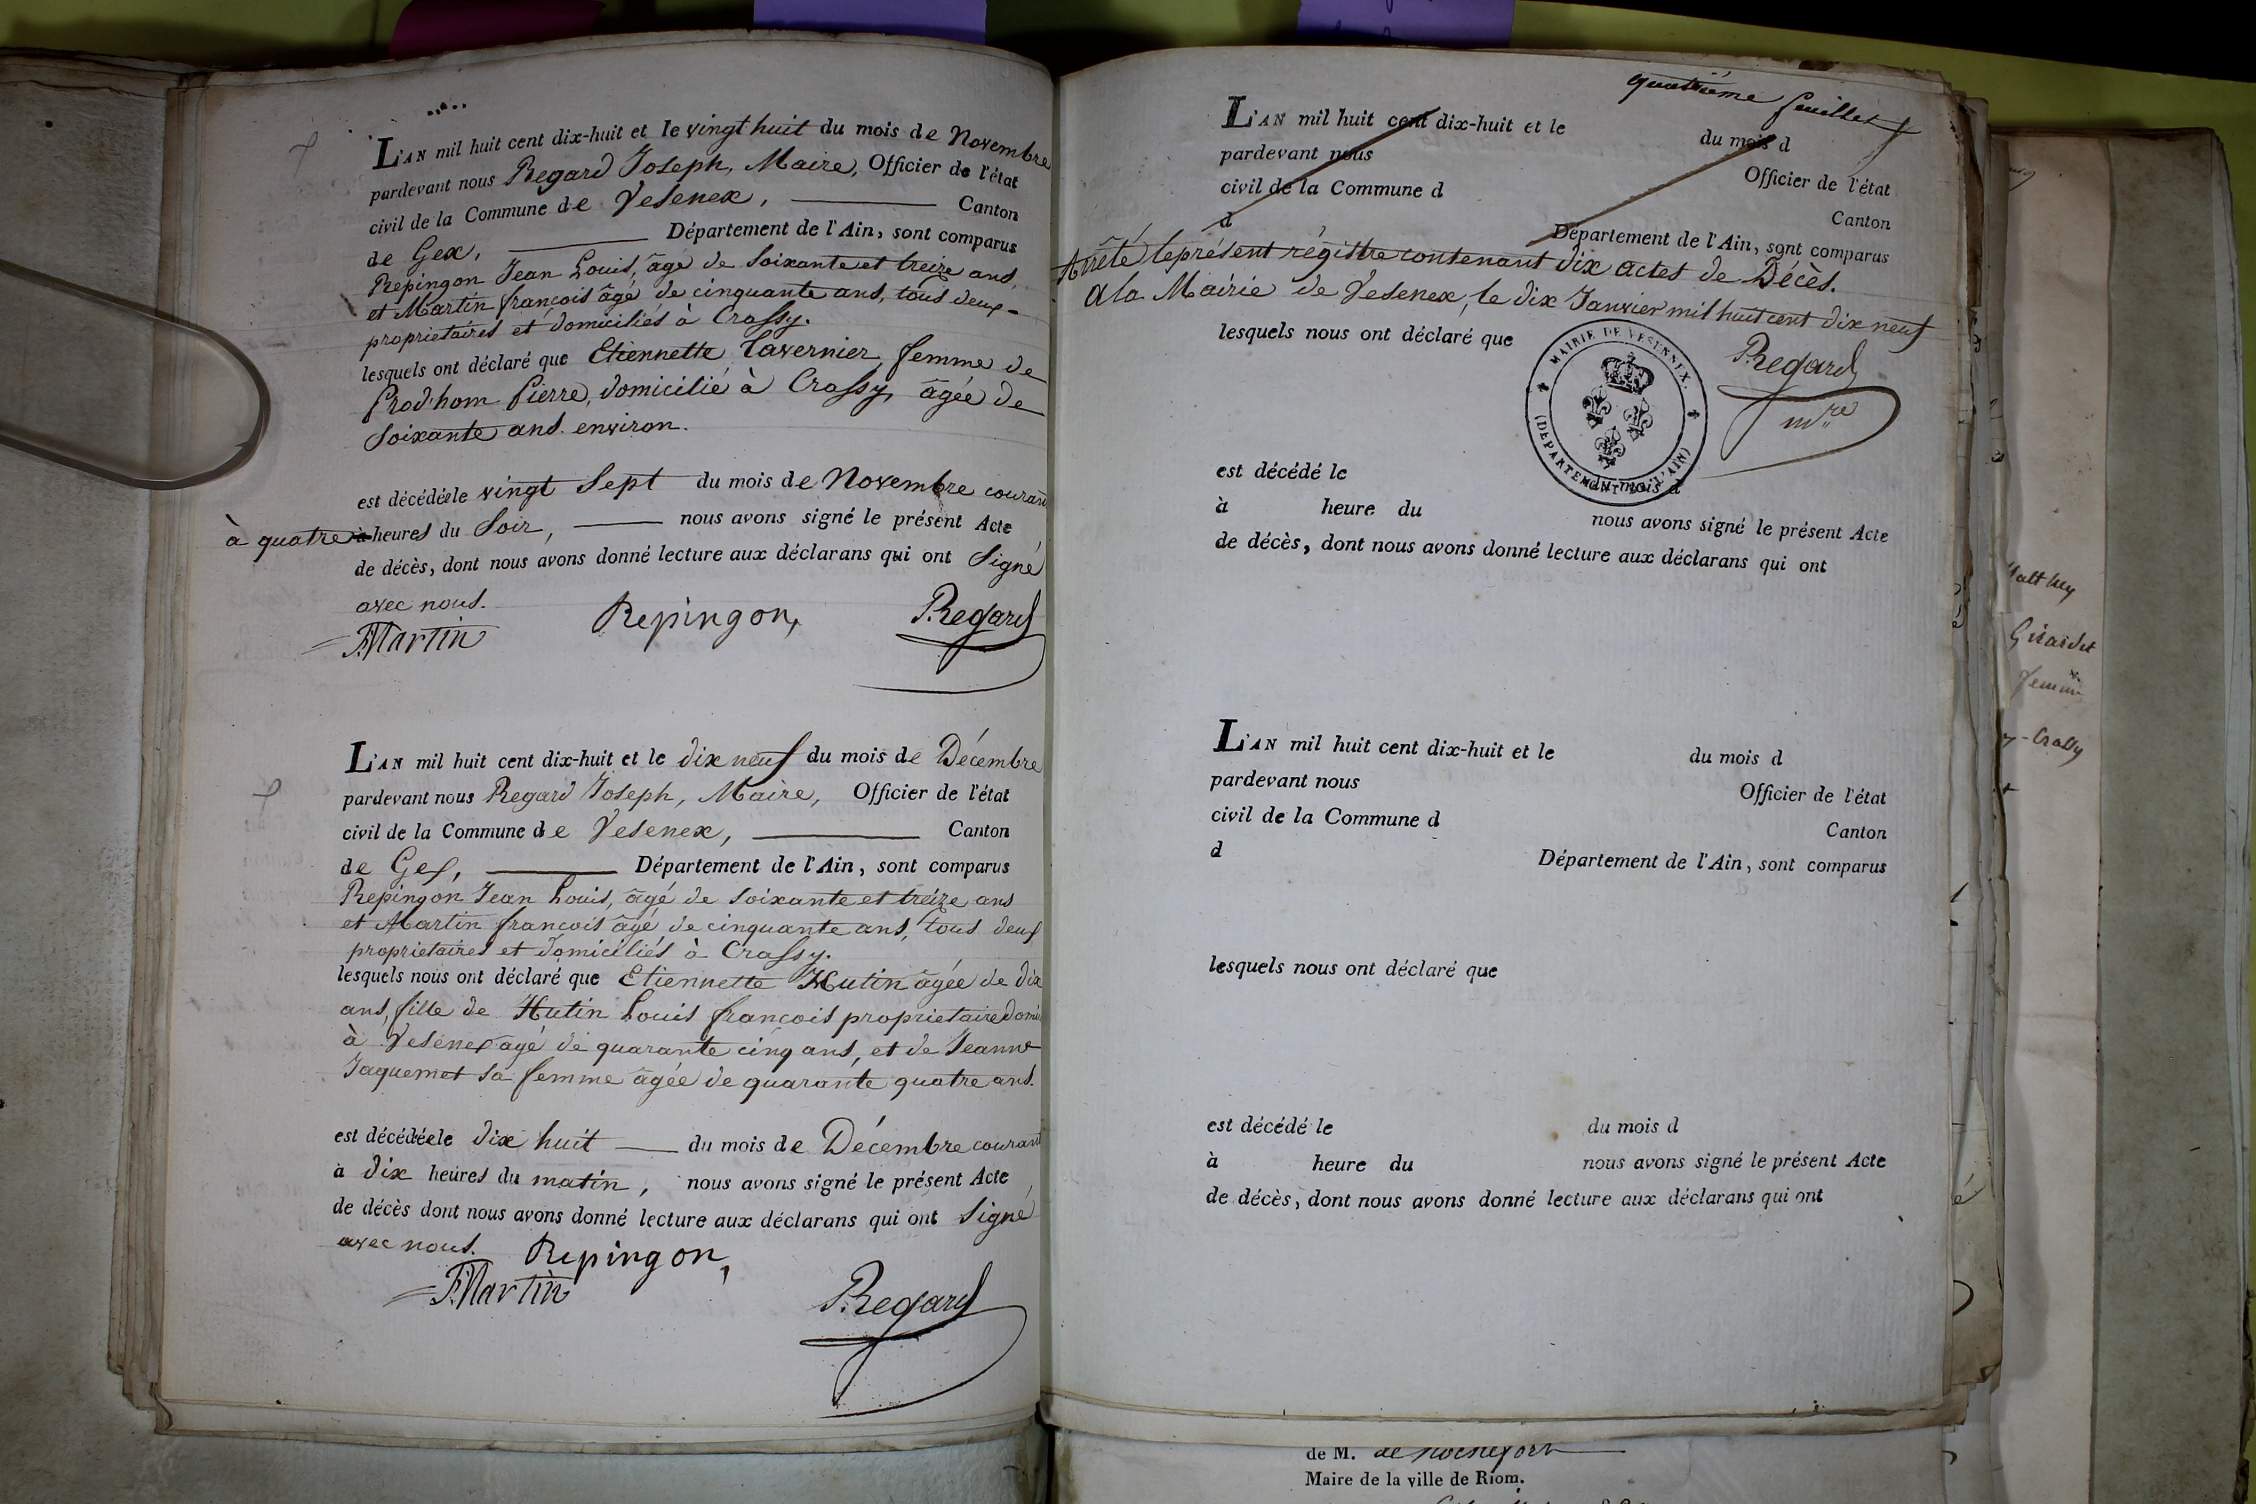 L'AN mil huit cent dix-huit et le vingt huit du mois de Novembre
pardevant nous Regard Joseph, Maire, Officier de l'état
civil de la Commune de Vesenex, Canton
de Gex, Département de l'Ain, sont comparus
Repingon Jean Louis, âgé de soixante et treize ans,
et Martin françois âgé de cinquante ans, tous deux
proprietaires et domiciliés à Crassy.
lesquels ont déclaré que Etiennette Tavernier femme de
Prod'hom Pierre, domicilié à Crassy, âgée de
soixante ans environ.
est décédée le vingt sept du mois de Novembre courant
à quatre à heures du soir, nous avons signé le présent Acte
de décès, dont nous avons donné lecture aux déclarans qui ont signé
avec nous.
Repingon, Regard
F. Martin
L'AN mil huit cent dix-huit et le dix neuf du mois de Décembre
pardevant nous Regard Joseph, Maire, Officier de l'état
civil de la Commune de Vesenex, Canton
de Gex, Département de l'Ain, sont comparus
Repingon Jean Louis, âgé de soixante et treize ans
et Martin françois âgé de cinquante ans, tous deux
proprietaires et domiciliés à Crassy.
lesquels nous ont déclaré que Etiennette Hutin âgée de dix
ans, fille de Hutin Louis françois proprietaire domi
à Vesenex âgé de quarante cinq ans, et de Jeanne
Jaquemet sa femme âgée de quarante quatre ans.
est décédée le dix huit du mois de Décembre courant
à dix heures du matin, nous avons signé le présent Acte
de décès dont nous avons donné lecture aux déclarans qui ont signé
avec nous. Repingon,
F. Martin
Regard
quatrième feuillet
L'AN mil huit cent dix-huit et le du mois d
pardevant nous Officier de l'état
civil de la Commune d Canton
d Département de l'Ain, sont comparus
Arrêté le présent régistre contenant dix actes de Décès.
A la Mairie de Vesenex, le dix Janvier mil huit cent dix neuf
lesquels nous ont déclaré que
MAIRIE DE VESENNEX.
(DÉPARTEMENT DE L'AIN)
Regard
mre
est décédé le du mois d
à heure du nous avons signé le présent Acte
de décès, dont nous avons donné lecture aux déclarans qui ont
L'AN mil huit cent dix-huit et le du mois d
pardevant nous Officier de l'état
civil de la Commune d Canton
d Département de l'Ain, sont comparus
lesquels nous ont déclaré que
est décédé le du mois d
à heure du nous avons signé le présent Acte
de décès, dont nous avons donné lecture aux déclarans qui ont
Girardet
Crassy
de M. de Rochefort
Maire de la ville de Riom.